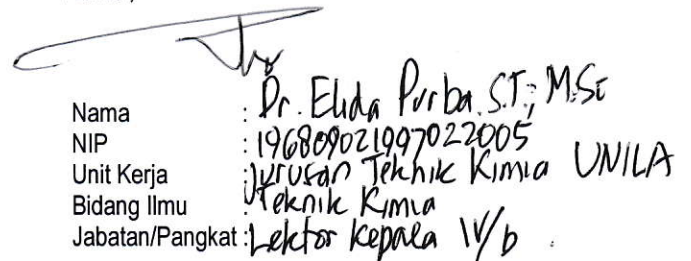 Nama : Dr. Elida Purba. S.T., M.Sc
NIP : 196809021997022005
Unit Kerja : Jurusan Teknik Kimia UNILA
Bidang Ilmu : Teknik Kimia
Jabatan/Pangkat : Lektor Kepala IV/b